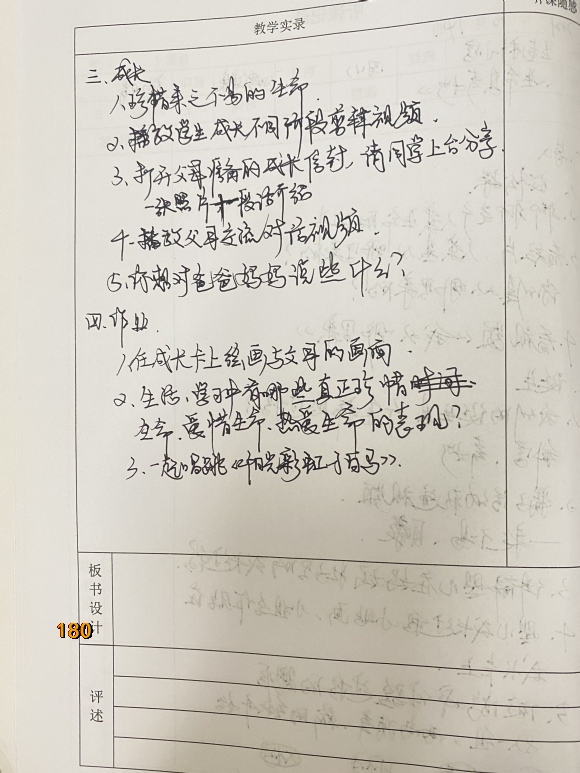 听课随感
教学实录
三、成长
1、珍惜来之不易的生命.
2、播放学生成长不同阶段剪辑视频.
3、打开父母准备的成长信封,请同学上台分享.
一张照片十段话介绍
4、播放父母交流对话视频.
5、你想对爸爸妈妈说些什么?
四、作业.
1、在成长卡上绘画与父母的画面.
2、生活、学习中有哪些真正珍惜
生命、爱惜生命、热爱生命的表现?
3、一起唱跳《阳光彩虹小白马》.
板书设计
180
评述